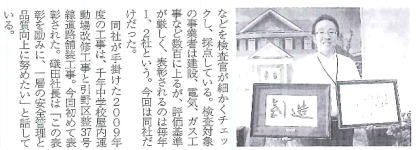 などを検査官が細かくチェッ
クし、採点している。検査対象
の事業者は建設、電気、ガス工
事など数百に上るが、評価基準
が厳しく、表彰されるのは毎年
1、2社という。今回は同社だ
けだった。
同社が手掛けた2009年
度の工事は、千年中学校屋内運
動場改修工事と引野区整37号
線道路舗装工事。今回初めて表
彰された。磯田社長は「この表
彰を励みに、一層の安全管理と
品質向上に努めたい」と話して
いる。
創造